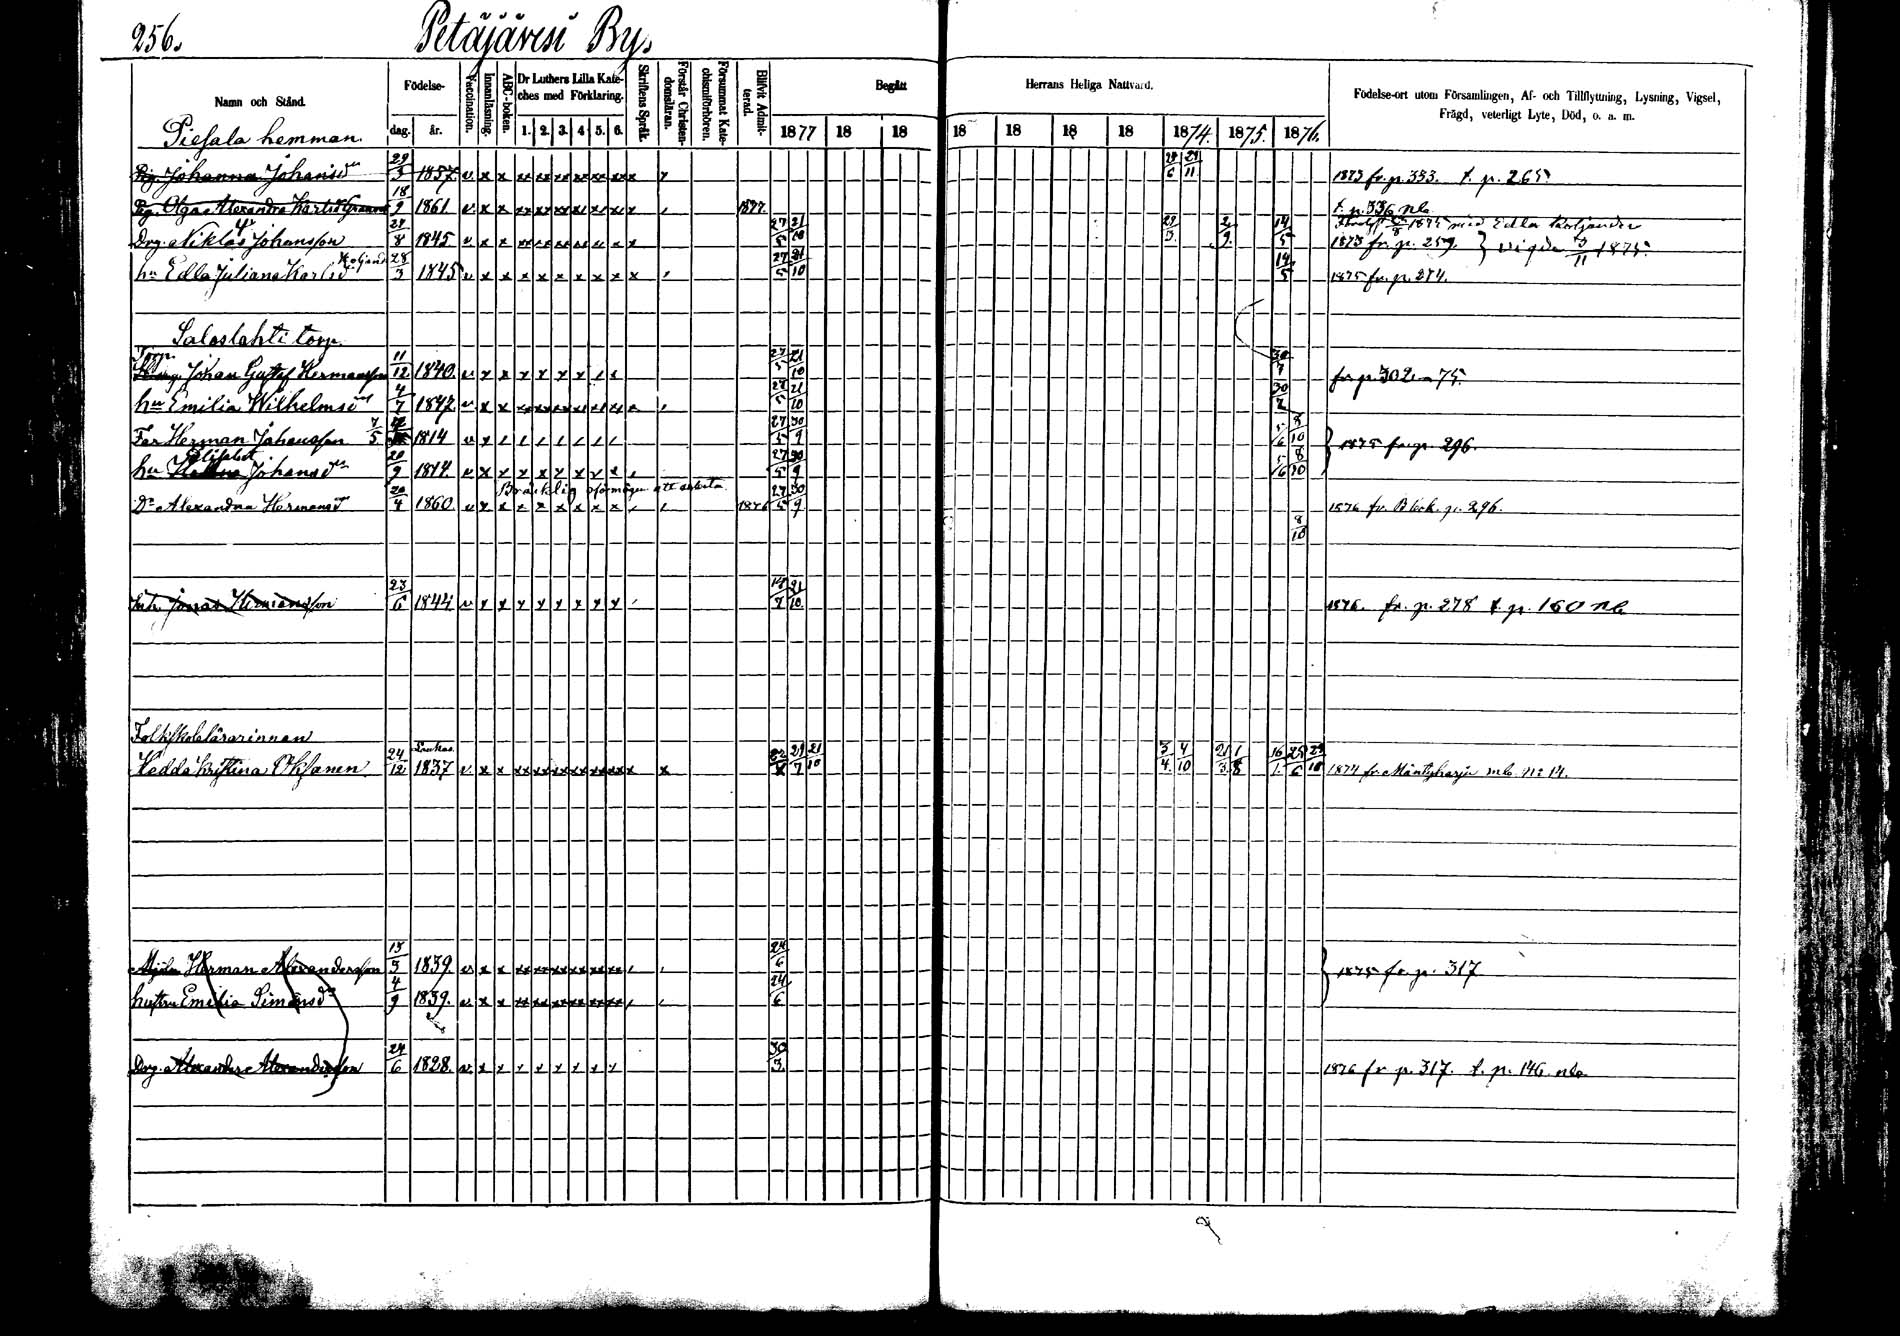 256. Petäjävesi By.
Namn och Stånd.
Födelse-
dag. år.
Vaccination.
Innanläsning.
ABC-boken.
Dr Luthers Lilla Kate-
ches med Förklaring.
1. 2. 3. 4. 5. 6.
Skriftens Språk.
Förstår Christen-
domsläran.
Försummat Kate-
chismiförhören.
Blifvit Admit-
terad.
Begått Herrans Heliga Nattvard.
1877 18 18 18 18 18 18 1874. 1875. 1876.
Födelse-ort utom Församlingen, Af- och Tillflyttning, Lysning, Vigsel,
Frägd, veterligt Lyte, Död, o. a. m.
Piesala hemman.
Pig. Johanna Johansdr 29/3 1857. v x x xx xx xx xx xx xx x 29/6 29/11 1873 fr. p. 353. t. p. 265.
Pig. Olga Alexandra Karlsdr 18/9 1861 v x x 1877. t. p. 336 nb
Drg. Niklas Johansson 8 1845 v x x 27/5 21/10 29/3. 2/9. 14/5 1873 fr. p. 259. } vigda 1875.
1875 med Edla
hu Edla Juliana Karlsdr 28/3 1845 v x x x x x x x x x 27/5 21/10 14/5 1875 fr. p. 274.
Saloslahti torp.
Torp.
Johan Gustaf Hermansson 11/12 1840. v x x x x x x 27/5 21/10 30/7 fr. p. 302 75.
hu Emilia Wilhelmsdr 4/7 1847 v x x 27/5 21/10 30/7
Far Herman Johansson 7/5 1814 v 27/5 30/9 5/6 8/10 } 1875 fr. p. 296.
hu Elisabet Johansdr 20/9 1814. v x x x x x x x 27/5 30/9 5/6 8/10
Bräcklig oförmögen att arbeta
Dr Alexandra Hermansdr 20/4 1860 v x x x x x x x x 1876 27/5 30/9 8/10 1876 fr. p. 296.
Inh. Jonas Hermansson 23/6 1844 v x x x x x x x x 21/10. 1876. fr. p. 278 t. p. 160 nb
Folkskolelärarinnan
Hedda Kristina Oksanen 24/12 1837 v. x x xx xx xx xx xx xx x x 29/7 21/10 3/4. 4/10 21/3. 1/8 16/1. 25/6 29/10 1874 fr Mäntyharju mb. No 14.
Herman Alexandersson 3 1839. v x x 24/6 } 1875 fr. p. 317
hustru Emilia Simonsdr 4/9 1839. v x x 24/6
Drg. Alexander Alexandersson 24/6 1828. v. x x x x x x x x 30/3. 1876 fr p. 317. t. p. 146. nb.